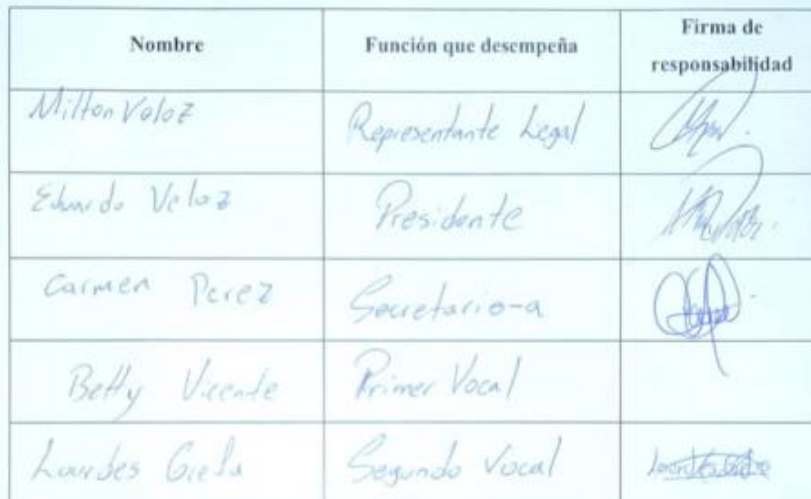 Nombre
Función que desempeña
Firma de
responsabilidad
Milton Veloz
Representante Legal
Eduardo Veloz
Presidente
Carmen Perez
Secretario-a
Betty Vicente
Primer Vocal
Lourdes
Segundo Vocal